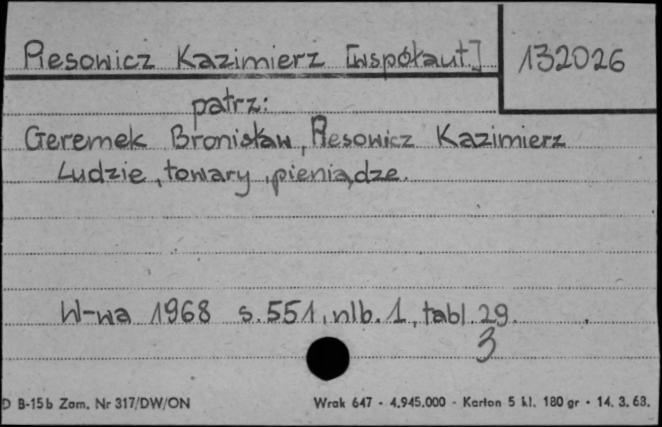 Piesowicz Kazimierz [współaut]
132026
patrz:
Geremek Bronisław, Piesowicz Kazimierz
Ludzie, towary, pieniądze.
W-wa 1968 s. 551, nlb. 1, tabl. 29.
3
D B-15b Zam. Nr 317/DW/ON
Wrak 647 - 4.945.000 - Karton 5 kl. 180 gr - 14. 3. 63.